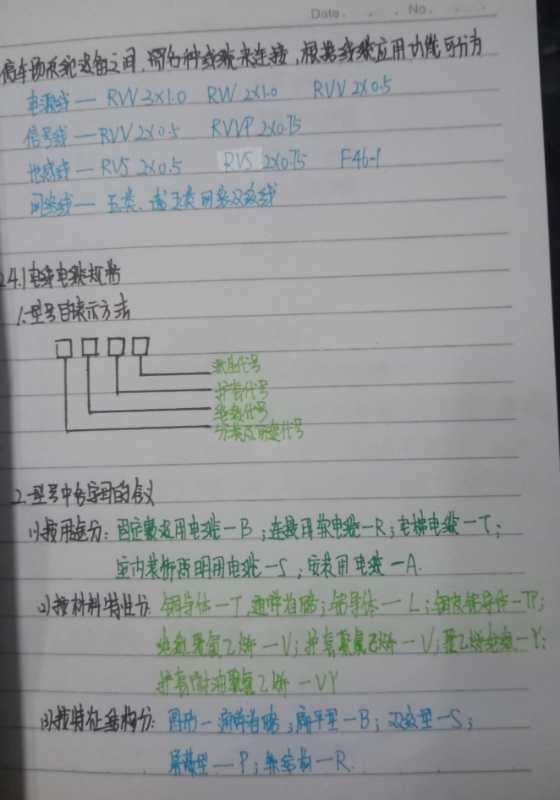 Date. No.
停车场系统设备之间,需各种线缆来连接,根据线缆应用功能可分为
电源线 — RVV 3×1.0 RVV 2×1.0 RVV 2×0.5
信号线 — RVV 2×0.5 RVVP 2×0.75
地感线 — RVS 2×0.5 RVS 2×0.75 F46-1
网络线 — 五类、超五类网络双绞线
2.4.1 电线电缆规格
1.型号的表示方法
派生代号
护套代号
绝缘代号
分类及用途代号
2.型号中各字母的含义
(1)按用途分:固定敷设用电缆—B;连接用软电缆—R;电梯电缆—T;
室内装饰照明用电缆—S;安装用电缆—A.
(2)按材料特性分:铜导体—T,通常省略;铝导体—L;铜皮铝导体—TP;
绝缘聚氯乙烯—V;护套聚氯乙烯—V;聚乙烯绝缘—Y;
护套耐油聚氯乙烯—VY
(3)按特征结构分:圆形—通常省略;扁平型—B;双绞型—S;
屏蔽型—P;软结构—R.